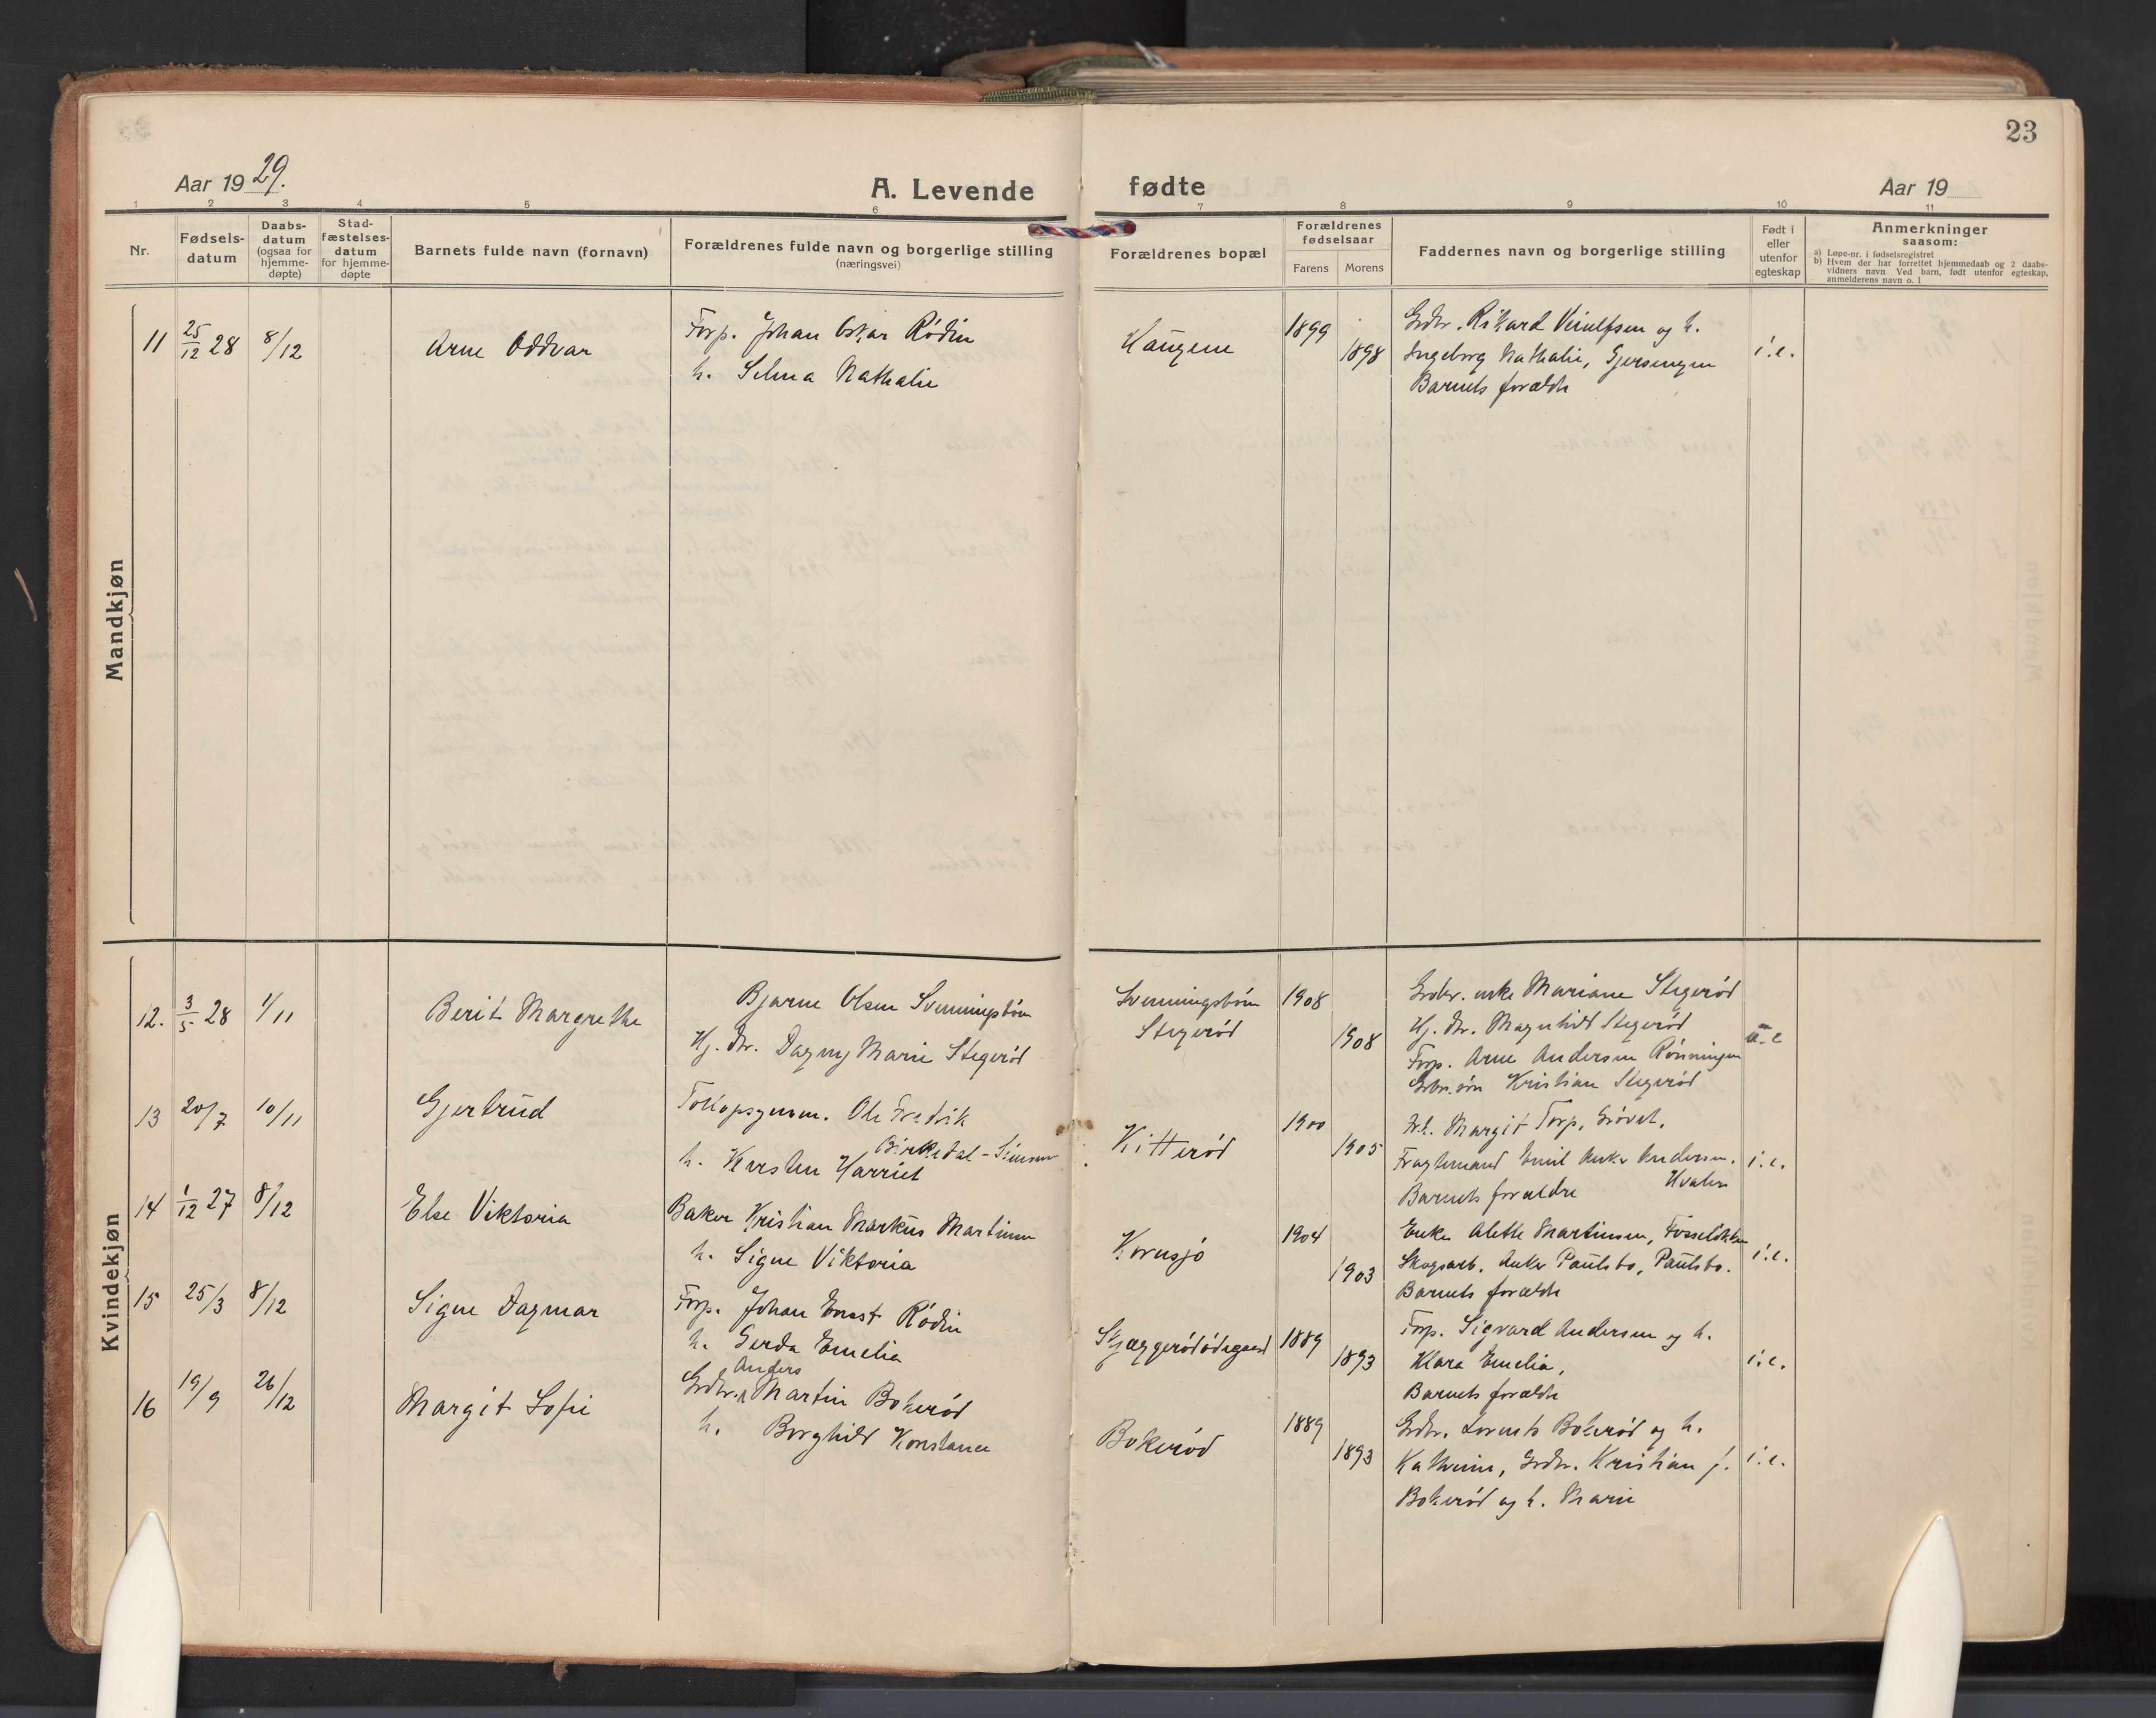 23
Aar 1929.
A. Levende
fødte
Aar 19
1 2 3 4 5 6 7 8 9 10 11
Nr.
Fødsels-
datum
Daabs-
datum
(ogsaa for
hjemme-
døpte)
Stad-
fæstelses-
datum
for hjemme-
døpte
Barnets fulde navn (fornavn)
Forældrenes fulde navn og borgerlige stilling
(næringsvei)
Forældrenes bopæl
Forældrenes
fødselsaar
Farens Morens
Faddernes navn og borgerlige stilling
Født i
eller
utenfor
egteskap
Anmerkninger
saasom:
a) Løpe-nr. i fødselsregistret
b) Hvem der har forrettet hjemmedaab og 2 daabs-
vidners navn. Ved barn, født utenfor egteskap,
anmelderens navn o. l
Mandkjøn
11 25/12 28 8/12 Arne Oddvar
Forp. Johan Oskar Rödin
h. Selma Nathalie
Haugene
1899
1898
Grdbr. Rikard Veiulfsen og h.
Ingeborg Nathalie, Gjersengen
Barnets forældre
i.e.
Kvindekjøn
12. 3/5 28 1/11 Berit Margrethe
Bjarne Olsen Svenningsbön
Hj. dtr. Dagny Marie Stegeröd
Svenningsbön
Stegeröd
1908
1908
Grdbr. enke Mariane Stegeröd
Hj. dtr. Magnhild Stegeröd
Forp. Arne Andersen Rönningen
Grbr. sön Kristian Stegeröd
u.e
13 20/7 10/11 Gjertrud
Toldopsynsm. Ole Fredrik
Birkedal-Simonsen
h. Kirsten Harriet
Kitteröd
1900
1905
Frk. Margit Torp,
Fragtemand Emil Anker Andersen.
Barnets forældre
i.e.
14 1/12 27 8/12 Else Viktoria
Baker Kristian Markus Martinsen
h. Signe Viktoria
Kornsjö
1904
1903
Enke Alette Martinsen,
Skogsarb. Anker Paulsbo, Paulsbo.
Barnets forældre
i.e.
15 25/3 8/12 Signe Dagmar
Forp. Johan Ernst Rödin
h. Gerda Emelia
Skjæggerödödegaard
1889
1893
Forp. Sigvard Andersen og h.
Klara Emelia,
Barnets forældre
i.e.
16 19/9 26/12 Margit Sofie
Anders
Grdbr. Martin Bokeröd
h. Borghild Konstance
Bokeröd
1889
1893
Grdbr. Lorents Bokeröd og h.
Kathrine, Grdbr. Kristian J.
Bokeröd og h. Marie
i.e.